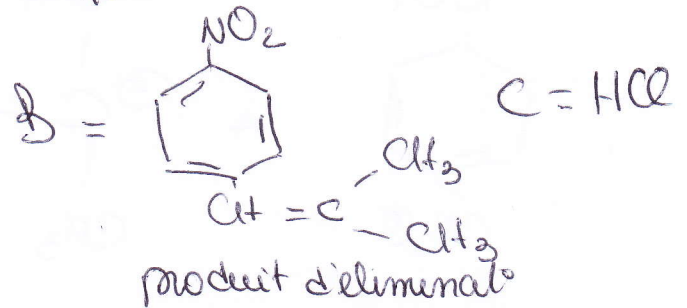 NO2
B =
C = HCl
CH = C
CH3
CH3
produit d'éliminat°